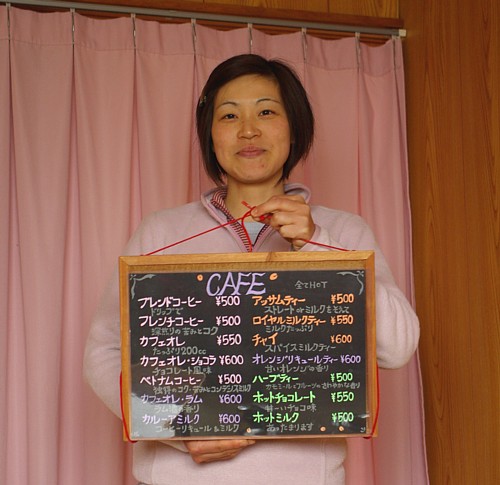 CAFE 全てHOT
ブレンドコーヒー ¥500
ドリップで
フレンチコーヒー ¥500
深煎りの苦みとコク
カフェオレ ¥550
たっぷり200cc
カフェオレ・ショコラ ¥600
チョコレート風味
ベトナムコーヒー ¥500
独特のコク・苦みとコンデンスミルク
カフェオレ・ラム ¥600
ラム酒の香り
カルーアミルク ¥600
コーヒーリキュール&ミルク
アッサムティー ¥500
ストレート or ミルクをそえて
ロイヤルミルクティー ¥550
ミルクたっぷり
チャイ ¥600
スパイスミルクティー
オレンジリキュールティー ¥600
甘いオレンジの香り
ハーブティー ¥500
カモミールとフルーツのさわやかな香り
ホットチョコレート ¥550
甘〜いチョコ味
ホットミルク ¥500
あったまります